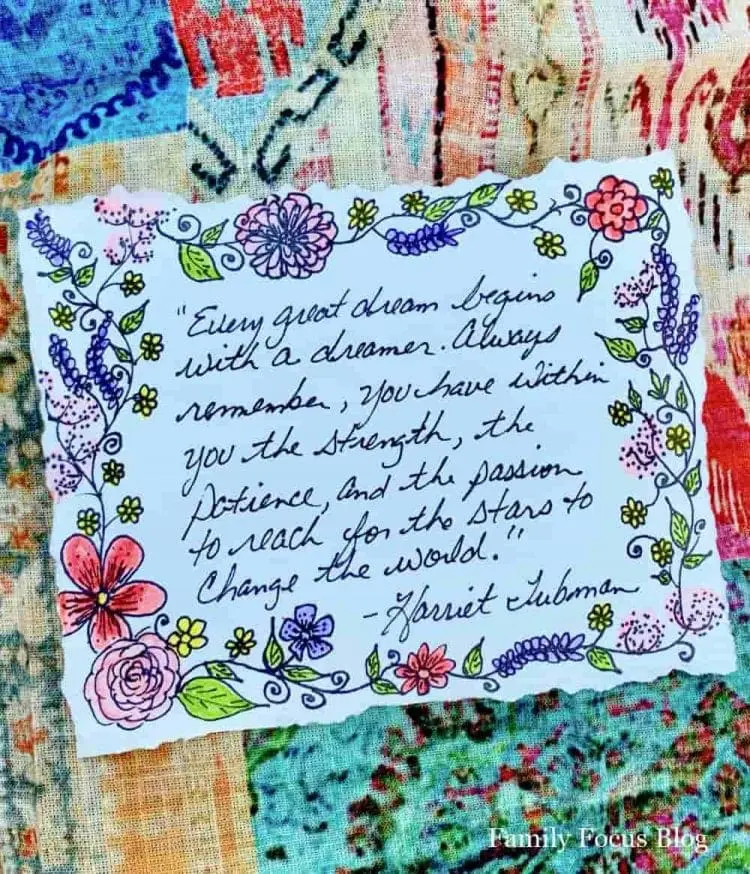 "Every great dream begins
with a dreamer. Always
remember, you have within
you the strength, the
patience, and the passion
to reach for the stars to
change the world."
- Harriet Tubman
Family Focus Blog